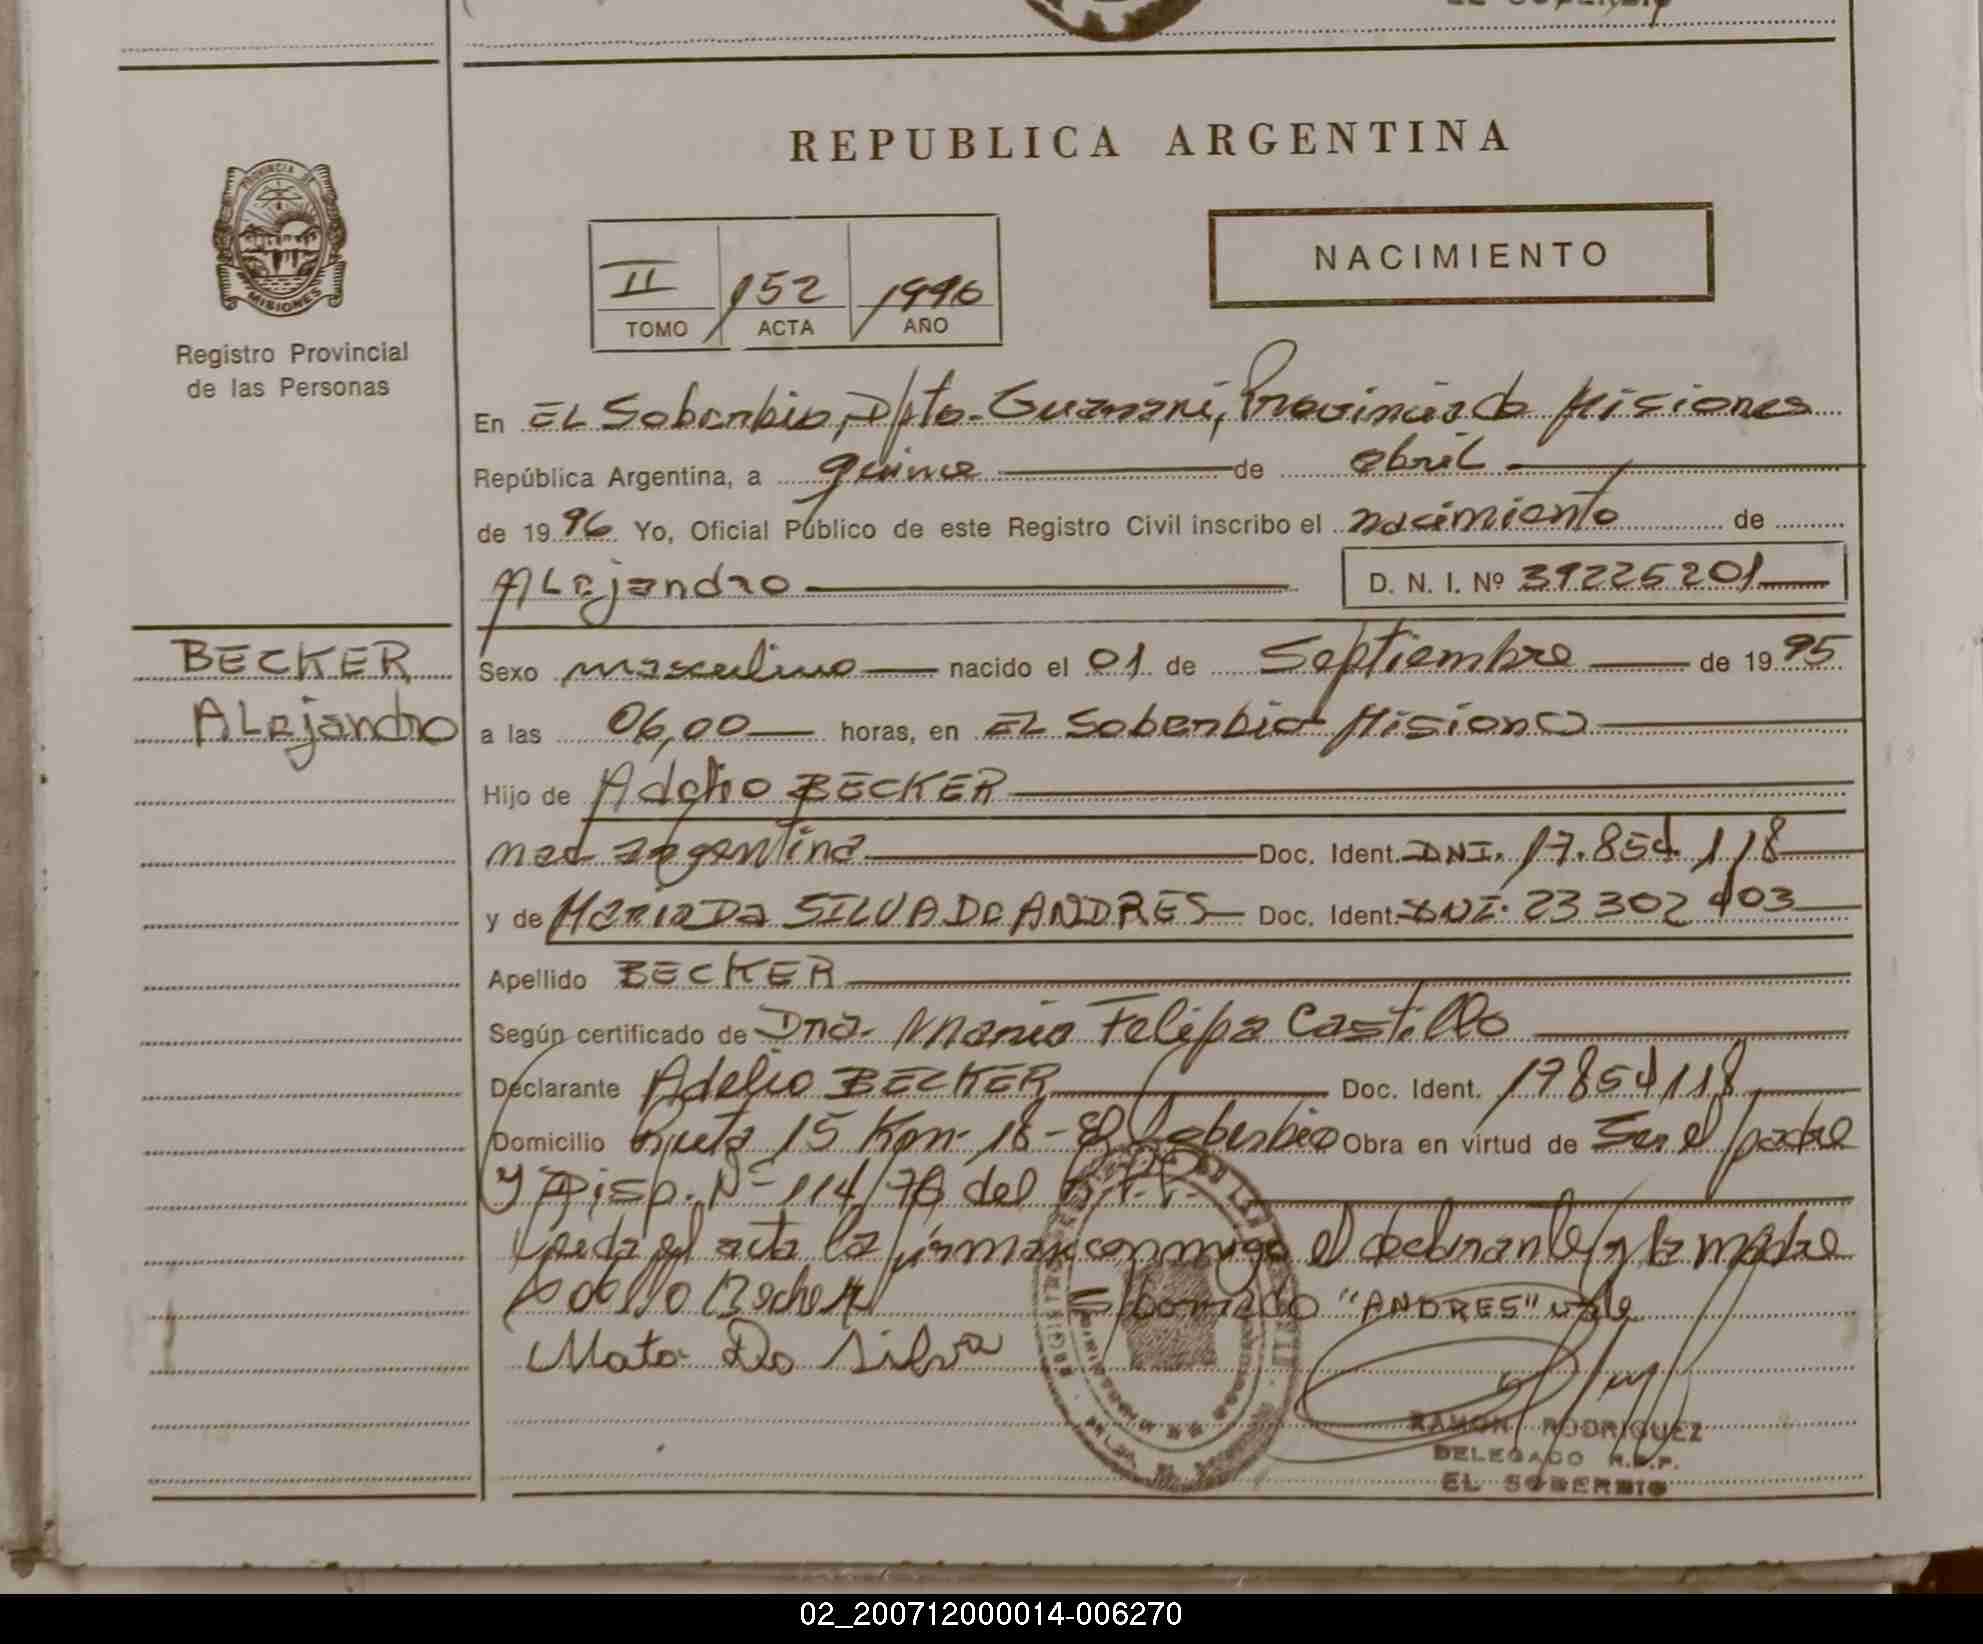 REPUBLICA ARGENTINA
PROVINCIA DE
MISIONES
Registro Provincial
de las Personas
II 152 1996
TOMO ACTA AÑO
NACIMIENTO
En EL Soberbio, Dpto. Guarani, Provincia de Misiones
República Argentina, a quince de abril
de 1996 Yo, Oficial Público de este Registro Civil inscribo el nacimiento de
ALejandro D. N. I. Nº 39225201
BECKER
ALejandro
Sexo masculino nacido el 01 de Septiembre de 1995
a las 06,00 horas, en EL Soberbio Misiones
Hijo de Adelio BECKER
nac argentina Doc. Ident. DNI. 17.854.118
y de Maria Da SILVA De ANDRES Doc. Ident. DNI. 23 302 403
Apellido BECKER
Según certificado de Dra. Maria Felipa Castillo
Declarante Adelio BECKER Doc. Ident. 17854118
Domicilio Ruta 15 Km- 18- El Soberbio Obra en virtud de Ser el padre
y Disp. Nº 114/78 del R.P.P.
Leida el acta la firman conmigo el declarante y la madre
Becker E/borrado "ANDRES" vale
Da Silva
RAMON RODRIGUEZ
DELEGADO R.P.P.
EL SOBERBIO
02_200712000014-006270